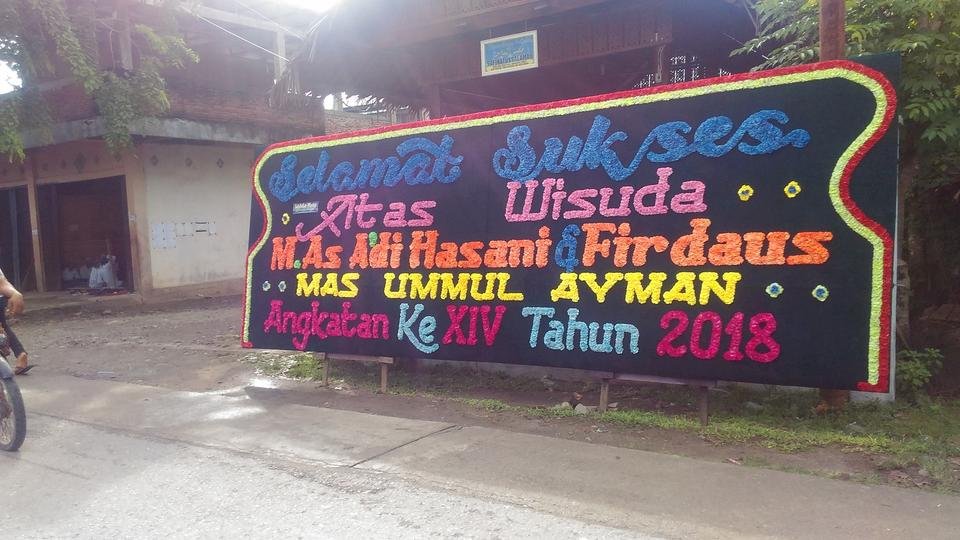 Selamat Sukses
Atas Wisuda
M.As A'di Hasani & Firdaus
MAS UMMUL AYMAN
Angkatan Ke XIV Tahun 2018